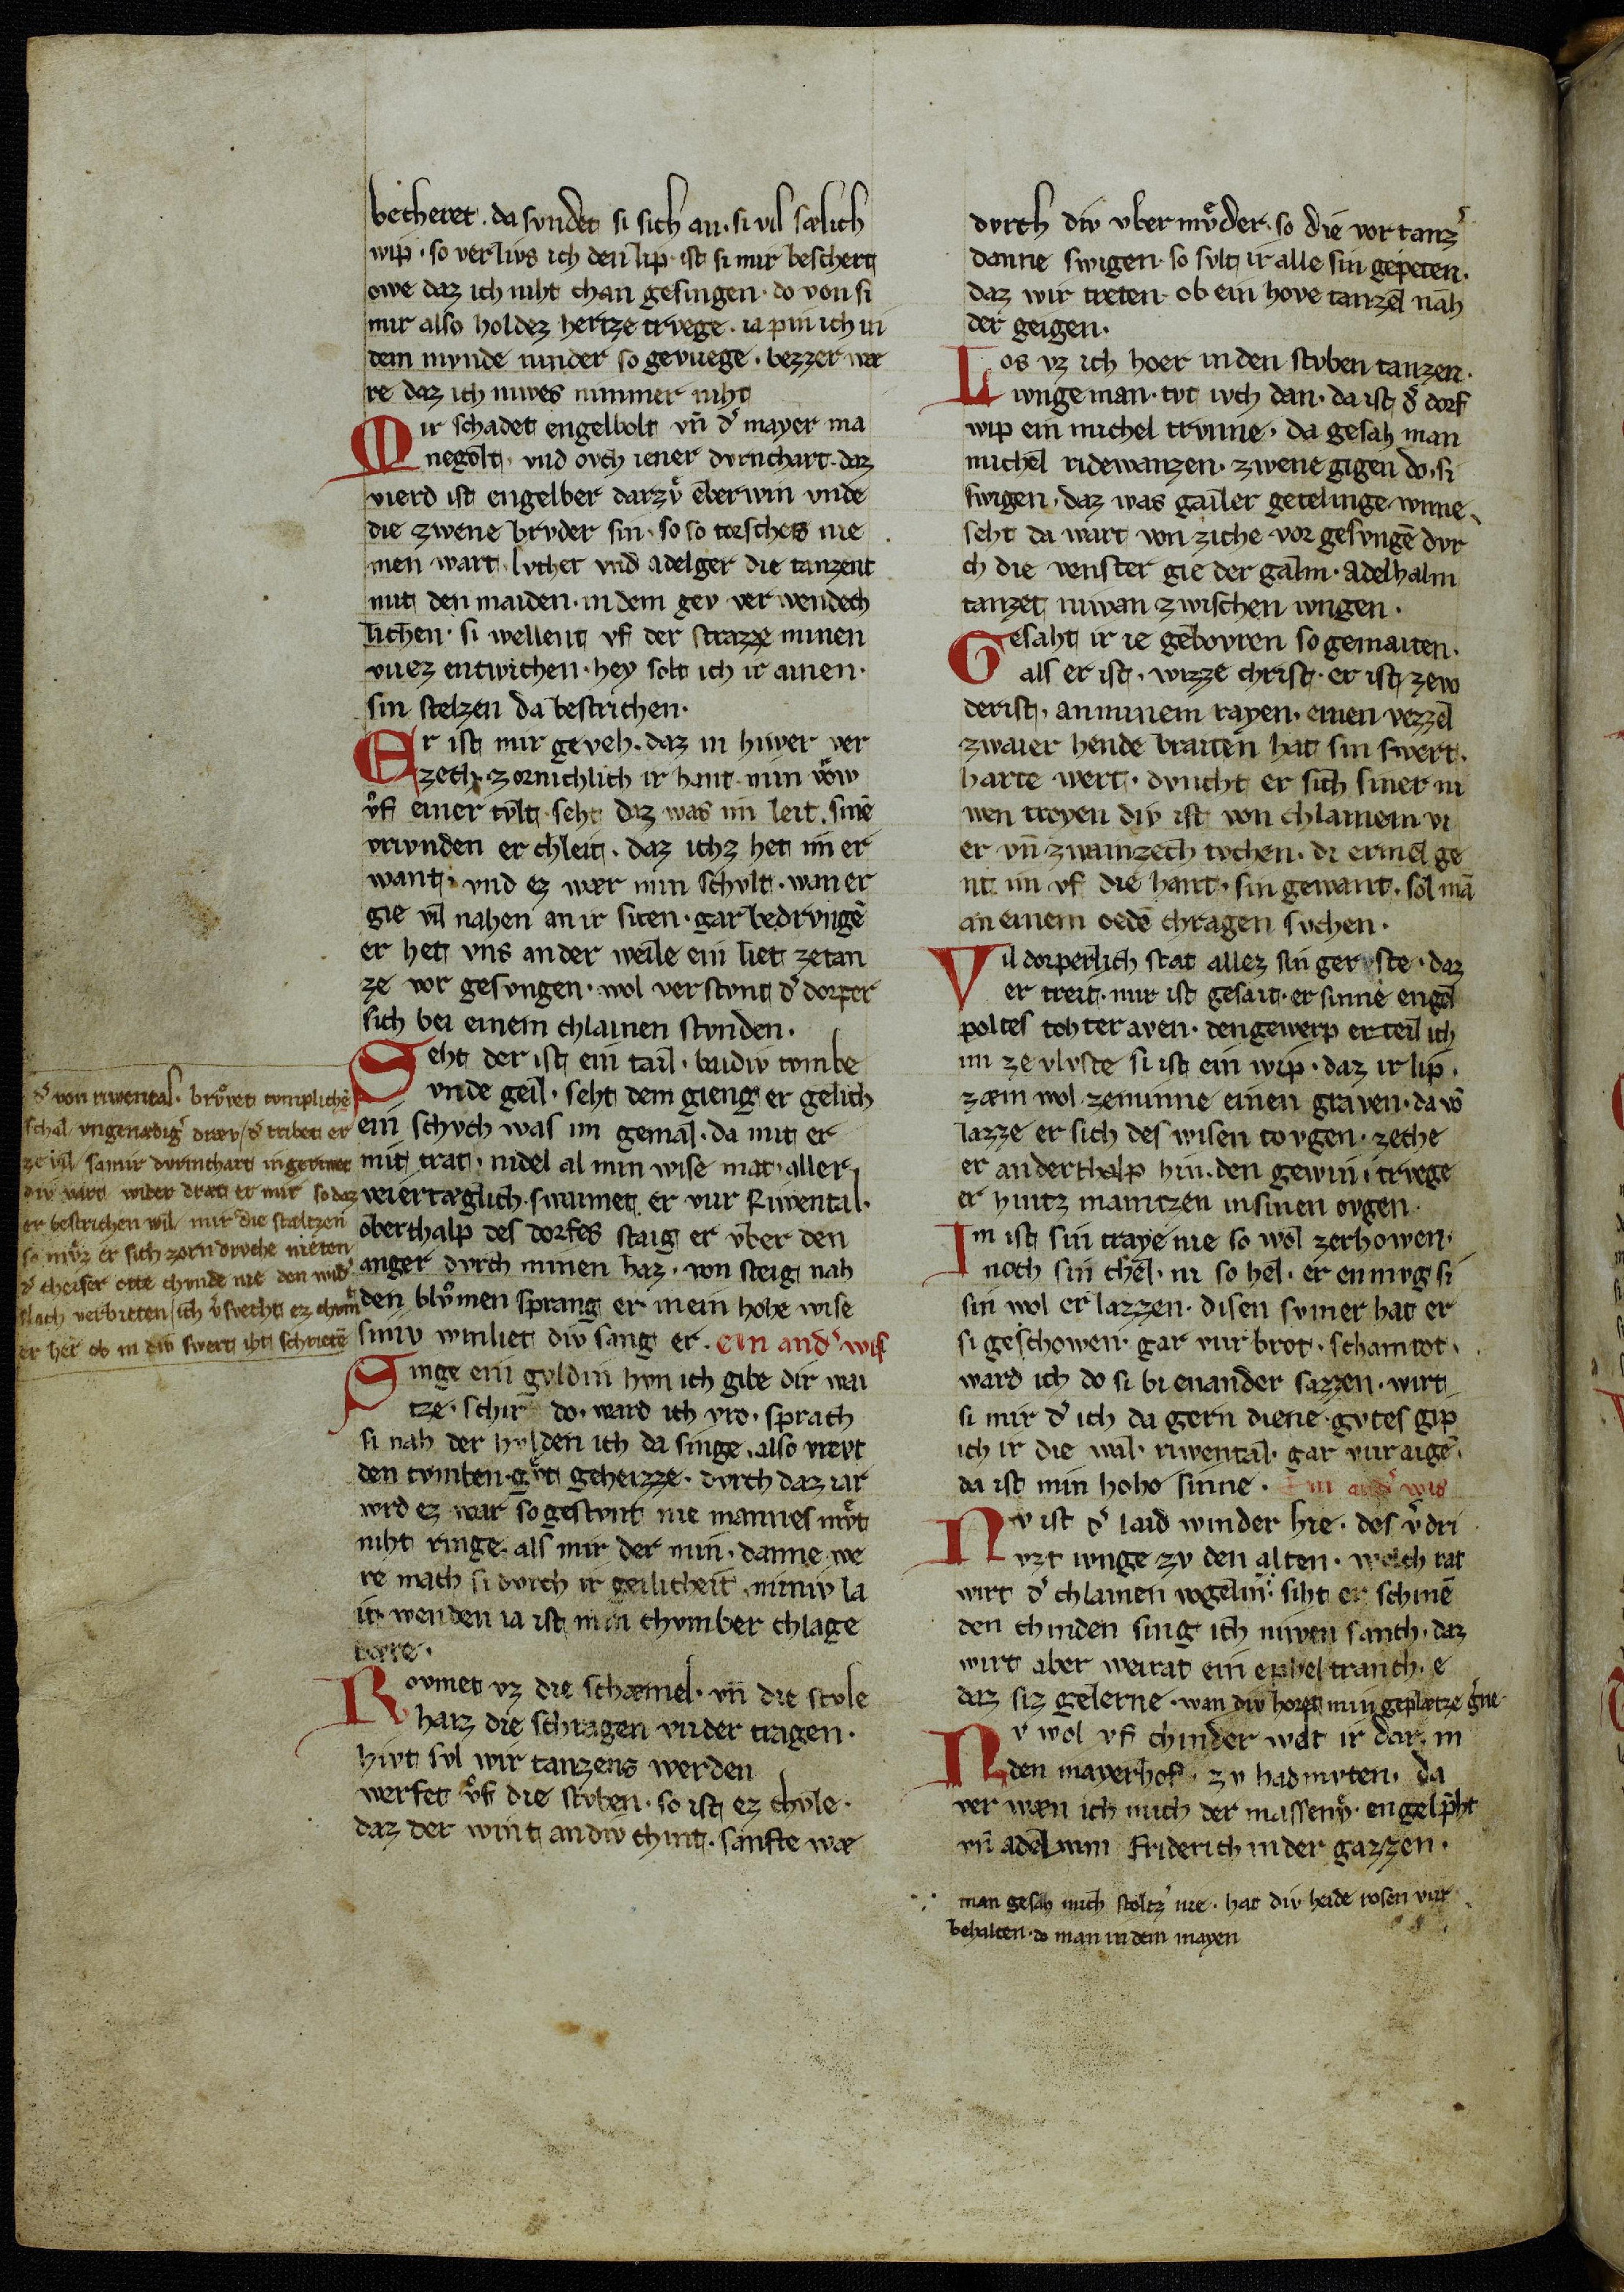 becheret. da svndet si sich an. si vil sælich
wip. so verlivs ich den lip. ist si mir beschert
owe daz ich niht chan gesingen. do von si
mir also holdez hertze trvege. ia pin ich in
dem mvnde ninder so gevuege. bezzer wæ
re daz ich niwes nimmer niht
Mir schadet engelbolt vn̄ dˀ mayer ma
negolt. vnd ovch iener dvrnchart. daz
vierd ist engelber darzvͦ eberwin vnde
die zwene brvder sin. so so tœrsches nie
men wart. lvther vnd adelger die tanzent
mit den maiden. in dem gev ver wendech
lichen. si wellent vf der strazze minen
vuez entwichen. hey solt ich ir ainen.
sin stelzen da bestrichen.
Er ist mir geveh. daz in hiwer ver
zech. zornichlich ir hant. min vͦow
vͦf einer tvlt. seht daz was im leit. sinē
vrivnden er chleit. daz ichz het im er
want. vnd ez wær min schvlt. wan er
gie vil nahen an ir siten. gar bedrvngē
er het vns ander weile ein liet zetan
ze vor gesvngen. wol verstvnt dˀ dorper
sich bei einem chlainen stvnden.
Seht der ist ein tail. baidiv tvmbe
vnde geil. seht dem gieng er gelich
ein schvch was im gemal. da mit er
mit trat. nidel al min wise mat. aller
veiertæglich. swimet er vur Riwental.
oberthalp des dorfes staig er vber den
anger dvrch minen haz. von steig nah
den blvͦmen sprang er in ein hohe wise
siniv winliet div sang er. ein andˀ wis
Singe ein gvldin hvn ich gibe dir wai
tze. schir do. ward ich vro. sprach
si nah der hvlden ich da singe. also vrevt
den tvmben. gvͦt geheizze. dvrch daz iar
wrd ez war so gestvnt nie mannes mvͦt
niht ringe. als mir der min. danne we
re mach si dvrch ir geilicheit. miniv la
it wenden ia ist min chvmber chlage
bære.
Rovmet vz die schæmel. vn̄ die stvle
haiz die schragen vuder tragen.
hivt svl wir tanzens werden
werfet vͦf die stvben. so ist ez chvle.
daz der wint an div chint. sanfte wæ
dˀ von riwental. brvͦvet tvmplichē
schal vngenædigˀ
ze vil samir dvrinchart in gerwet
div wart wider dræt er mir so daz
er bestrichen wil mir die stæltzen
so mvͦz er sich zorn drvche nieten
dˀ cheiser otte chvnde nie den widˀ
slach verbieten ich vˀsvechs ez chvmt
er her ob in div swert iht schrietē
dvrch div vber mvͦder. so die vortanzˀ
danne swigen. so svlt ir alle sin gepeten.
daz wir treten. ob ein hove tanzel nah
der geigen.
Los vz ich hoer in den stvben tanzen.
ivnge man. tvt ivch dan. da ist dˀ dorf
wip ein michel trvnne. da gesah man
michel ridewanzen. zwene gigen do. si
swigen. daz was gailer getelinge wnne.
seht da wart von ziche vor gesvngē dvr
ch die venster gie der galm. Adelhalm
tanzet niwan zwischen ivngen.
Gesaht ir ie gebovren so gemaiten.
als er ist. wizze christ. er ist zevo
derist. an minem rayen. einen vezzel
zwaier hende braiten hat sin swert.
harte wert. dvncht er sich siner ni
wen treyen div ist von chlainem vi
er vn̄ zwainzech tvchen. di ermel ge
nt im vf die hant. sin gewant. sol mā
an einem oedē chragen svchen.
Vil dorperlich stat allez sin gervste. daz
er treit. mir ist gesait. er sinne engel
poltes tohter aven. den gewerp erteil ich
im ze vlvste si ist ein wip. daz ir lip.
zæm wol zeminne einen graven. da vō
lazze er sich des wisen tovgen. zeche
er anderthalp hin. den gewin. trvege
er hintz maintzen in sinen ovgen.
Im ist sin traye nie so wol zerhowen.
noch sin chel. ni so hel. er en mvg si
sin wol er lazzen. disen svmer hat er
si geschowen. gar vur brot. schamrot.
ward ich do si bi enander sazzen. wirt
si mir dˀ ich da gern diene. gvtes gip
ich ir die wal. riwental. gar vur aigē.
da ist min hoho sinne. Ein andˀ wis
Nv ist dˀ laid winder hie. des vˀdri
vzt ivnge zv den alten. welch rat
wirt dˀ chlainen vogelin. siht er schinē
den chinden sing ich niwen sanch. daz
wirt aber weirat ein ephel tranch. e
daz siz gelerne. wan div horet min geplætze gˀne.
Nv wol vf chinder welt ir dar. in
den mayerhof. zv hadmvten. da
ver wæn ich mich der massenvͦ. engelpˀht
vn̄ adelwin Friderich in der gazzen.
man gesah mich stoltzˀ nie. hat div heide rosen vur
behalten. do man in dem mayen